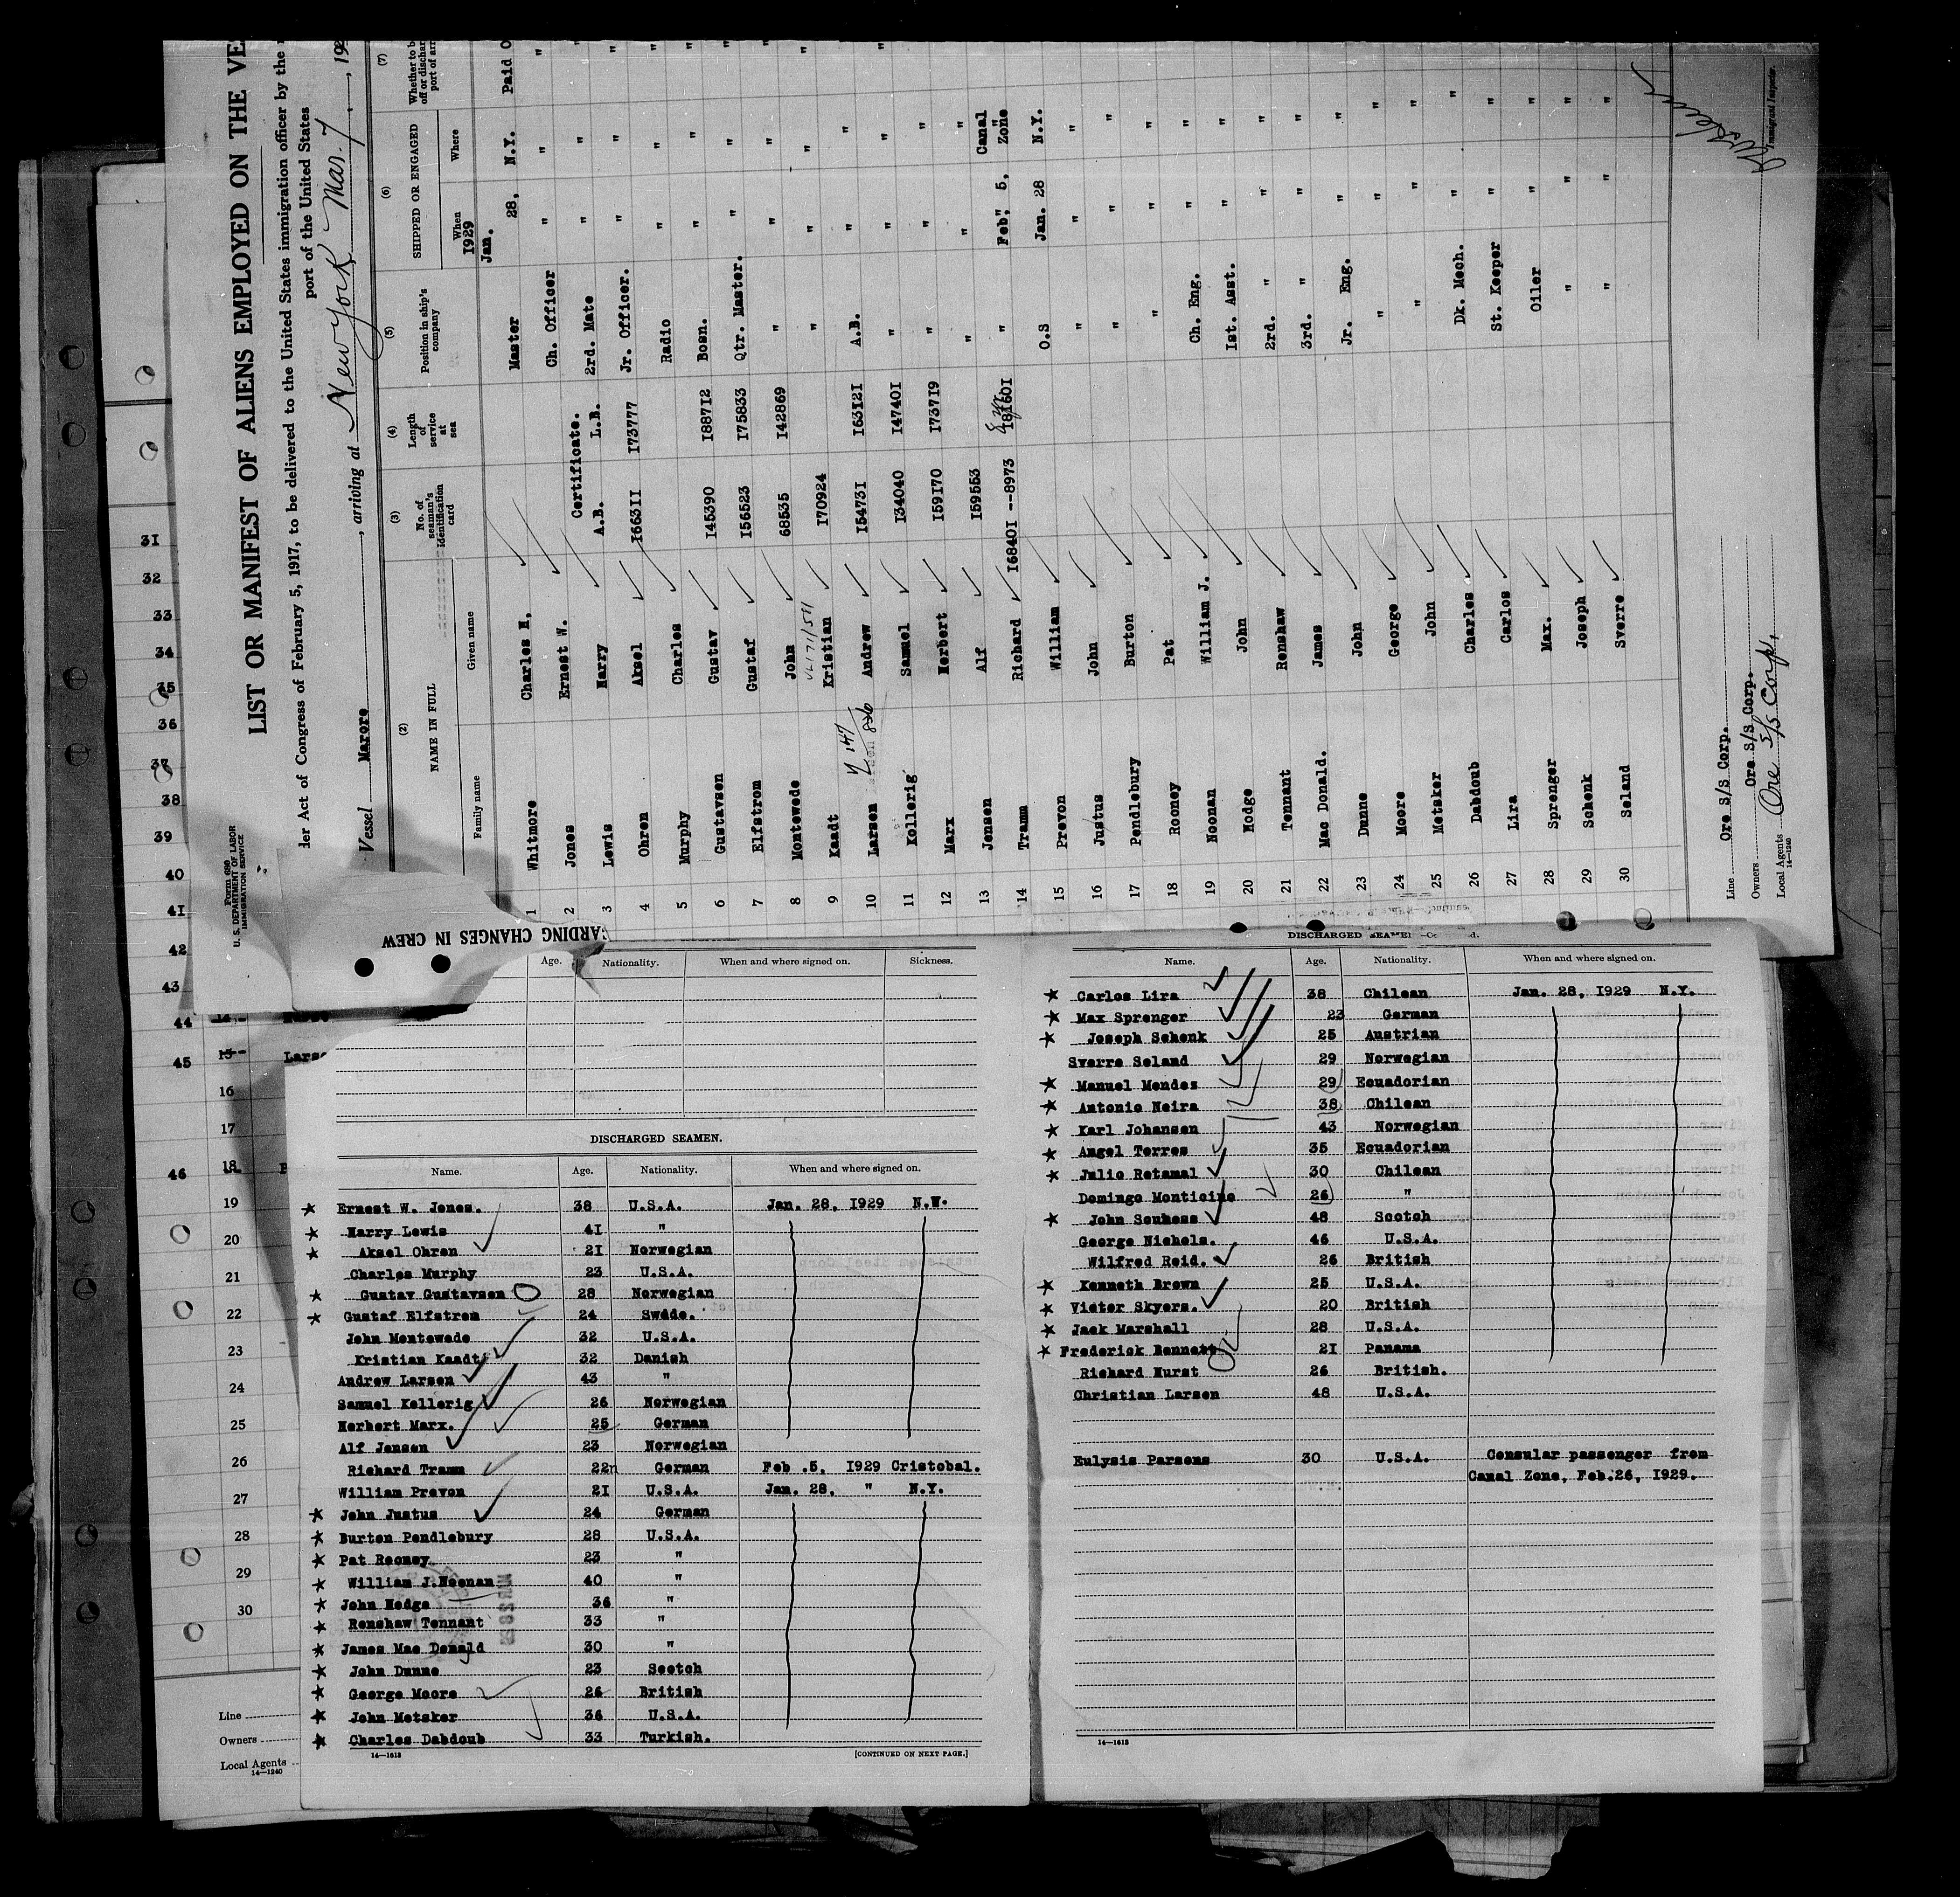 Form 680
U. S. DEPARTMENT OF LABOR
IMMIGRATION SERVICE
LIST OR MANIFEST OF ALIENS EMPLOYED ON THE VE
der Act of Congress of February 5, 1917, to be delivered to the United States immigration officer by the
port of the United States
Vessel Marore , arriving at New York Mar. 7 , 19
(2) (3) (4) (5) (6) (7)
NAME IN FULL
Family name Given name
No. of seaman's identification card
Length of service at sea
Position in ship's company
SHIPPED OR ENGAGED
When Where
Whether to b
off or dischar
port of arr
1929
Jan.
1 Whitmore Charles H. Master 28, N.Y. Paid O
2 Jones Ernest W. Certificate. Ch. Officer " " "
3 Lewis Harry A.B. L.B. 2rd. Mate " " "
4 Ohren Aksel 166311 173777 Jr. Officer. " " "
5 Murphy Charles Radio " " "
6 Gustavsen Gustav 145390 188712 Bosn. " " "
7 Elfstrom Gustaf 156523 175833 Qtr. Master. " " "
8 Montewede John 68535 142869 " " " "
9 Kaadt Kristian 170924 " " " "
10 Larsen Andrew 154731 163121 A.B. " " "
11 Kollerig Samuel 134040 147401 " " " "
12 Marx Herbert 159170 173719 " " "
13 Jensen Alf 159553 " " "
14 Tramm Richard 168401 --8973 181601 " Feb. 5, Canal Zone
15 Prevon William O.S Jan. 28 N.Y.
16 Justus John " " "
17 Pendlebury Burton " " "
18 Rooney Pat " " "
19 Noonan William J. Ch. Eng. " "
20 Hodge John 1st. Asst. " "
21 Tennant Renshaw 2rd. " " "
22 Mac Donald. James 3rd. " " "
23 Dunne John Jr. Eng. " "
24 Moore George " " "
25 Metsker John " " "
26 Dabdoub Charles Dk. Mech. " "
27 Lira Carlos St. Keeper " "
28 Sprenger Max. Oiler " "
29 Schenk Joseph " " "
30 Seland Sverre " " "
Line Ore S/S Corp.
Owners Ore S/S Corp.
Local Agents Ore S/S Corp.
14—1240
Immigrant Inspector.
31
32
33
34
35
36
37
38
39
40
41
42
43
44
45
46
GARDING CHANGES IN CREW
Age. Nationality. When and where signed on. Sickness.
15 Larse
16
17
18
19
20
21
22
23
24
25
26
27
28
29
30
Line
Owners
Local Agents
14—1240
DISCHARGED SEAMEN.
Name. Age. Nationality. When and where signed on.
★ Ernest W. Jones. 38 U.S.A. Jan. 28, 1929 N.Y.
★ Harry Lewis 41 "
★ Aksel Ohren 21 Norwegian
Charles Murphy 23 U.S.A.
★ Gustav Gustavsen 28 Norwegian
★ Gustaf Elfstrom 24 Swdde.
John Montewede 32 U.S.A.
Kristian Kaadt 32 Danish
Andrew Larsen 43 "
Samuel Kellerig 26 Norwegian
Herbert Marx. 25 German
Alf Jensen 23 Norwegian
Richard Tramm 22 German Feb .5, 1929 Cristobal.
William Prevon 21 U.S.A. Jan. 28, " N.Y.
★ John Justus 24 German
★ Burton Pendlebury 28 U.S.A.
★ Pat Rooney. 23 "
★ William J.Noonan 40 "
★ John Hodge 36 "
★ Renshaw Tennant 33 "
★ James Mac Donald 30 "
★ John Dunne 23 Scotch
★ George Moore 26 British
★ John Metsker 36 U.S.A.
★ Charles Dabdoub 33 Turkish.
14—1618 [CONTINUED ON NEXT PAGE.]
DISCHARGED SEAMEN—Continued.
Name. Age. Nationality. When and where signed on.
★ Carlos Lira 38 Chilean Jan. 28, 1929 N.Y.
★ Max Sprenger 23 German
★ Joseph Schenk 25 Austrian
Sverre Seland 29 Norwegian
★ Manuel Mendez 29 Ecuadorian
★ Antonio Neira 38 Chilean
★ Karl Johansen 43 Norwegian
★ Angel Torres 35 Ecuadorian
★ Julio Retamal 30 Chilean
Domingo Monticino 26 "
★ John Souness 48 Scotch
George Nichols. 46 U.S.A.
Wilfred Reid. 26 British
★ Kenneth Brown 25 U.S.A.
★ Victor Skyers. 20 British
★ Jack Marshall 28 U.S.A.
★ Frederick Bennett 21 Panama
Richard Hurst 26 British.
Christian Larsen 48 U.S.A.
Eulysis Parsons 30 U.S.A. Consular passenger from
Canal Zone, Feb.26, 1929.
14—1618